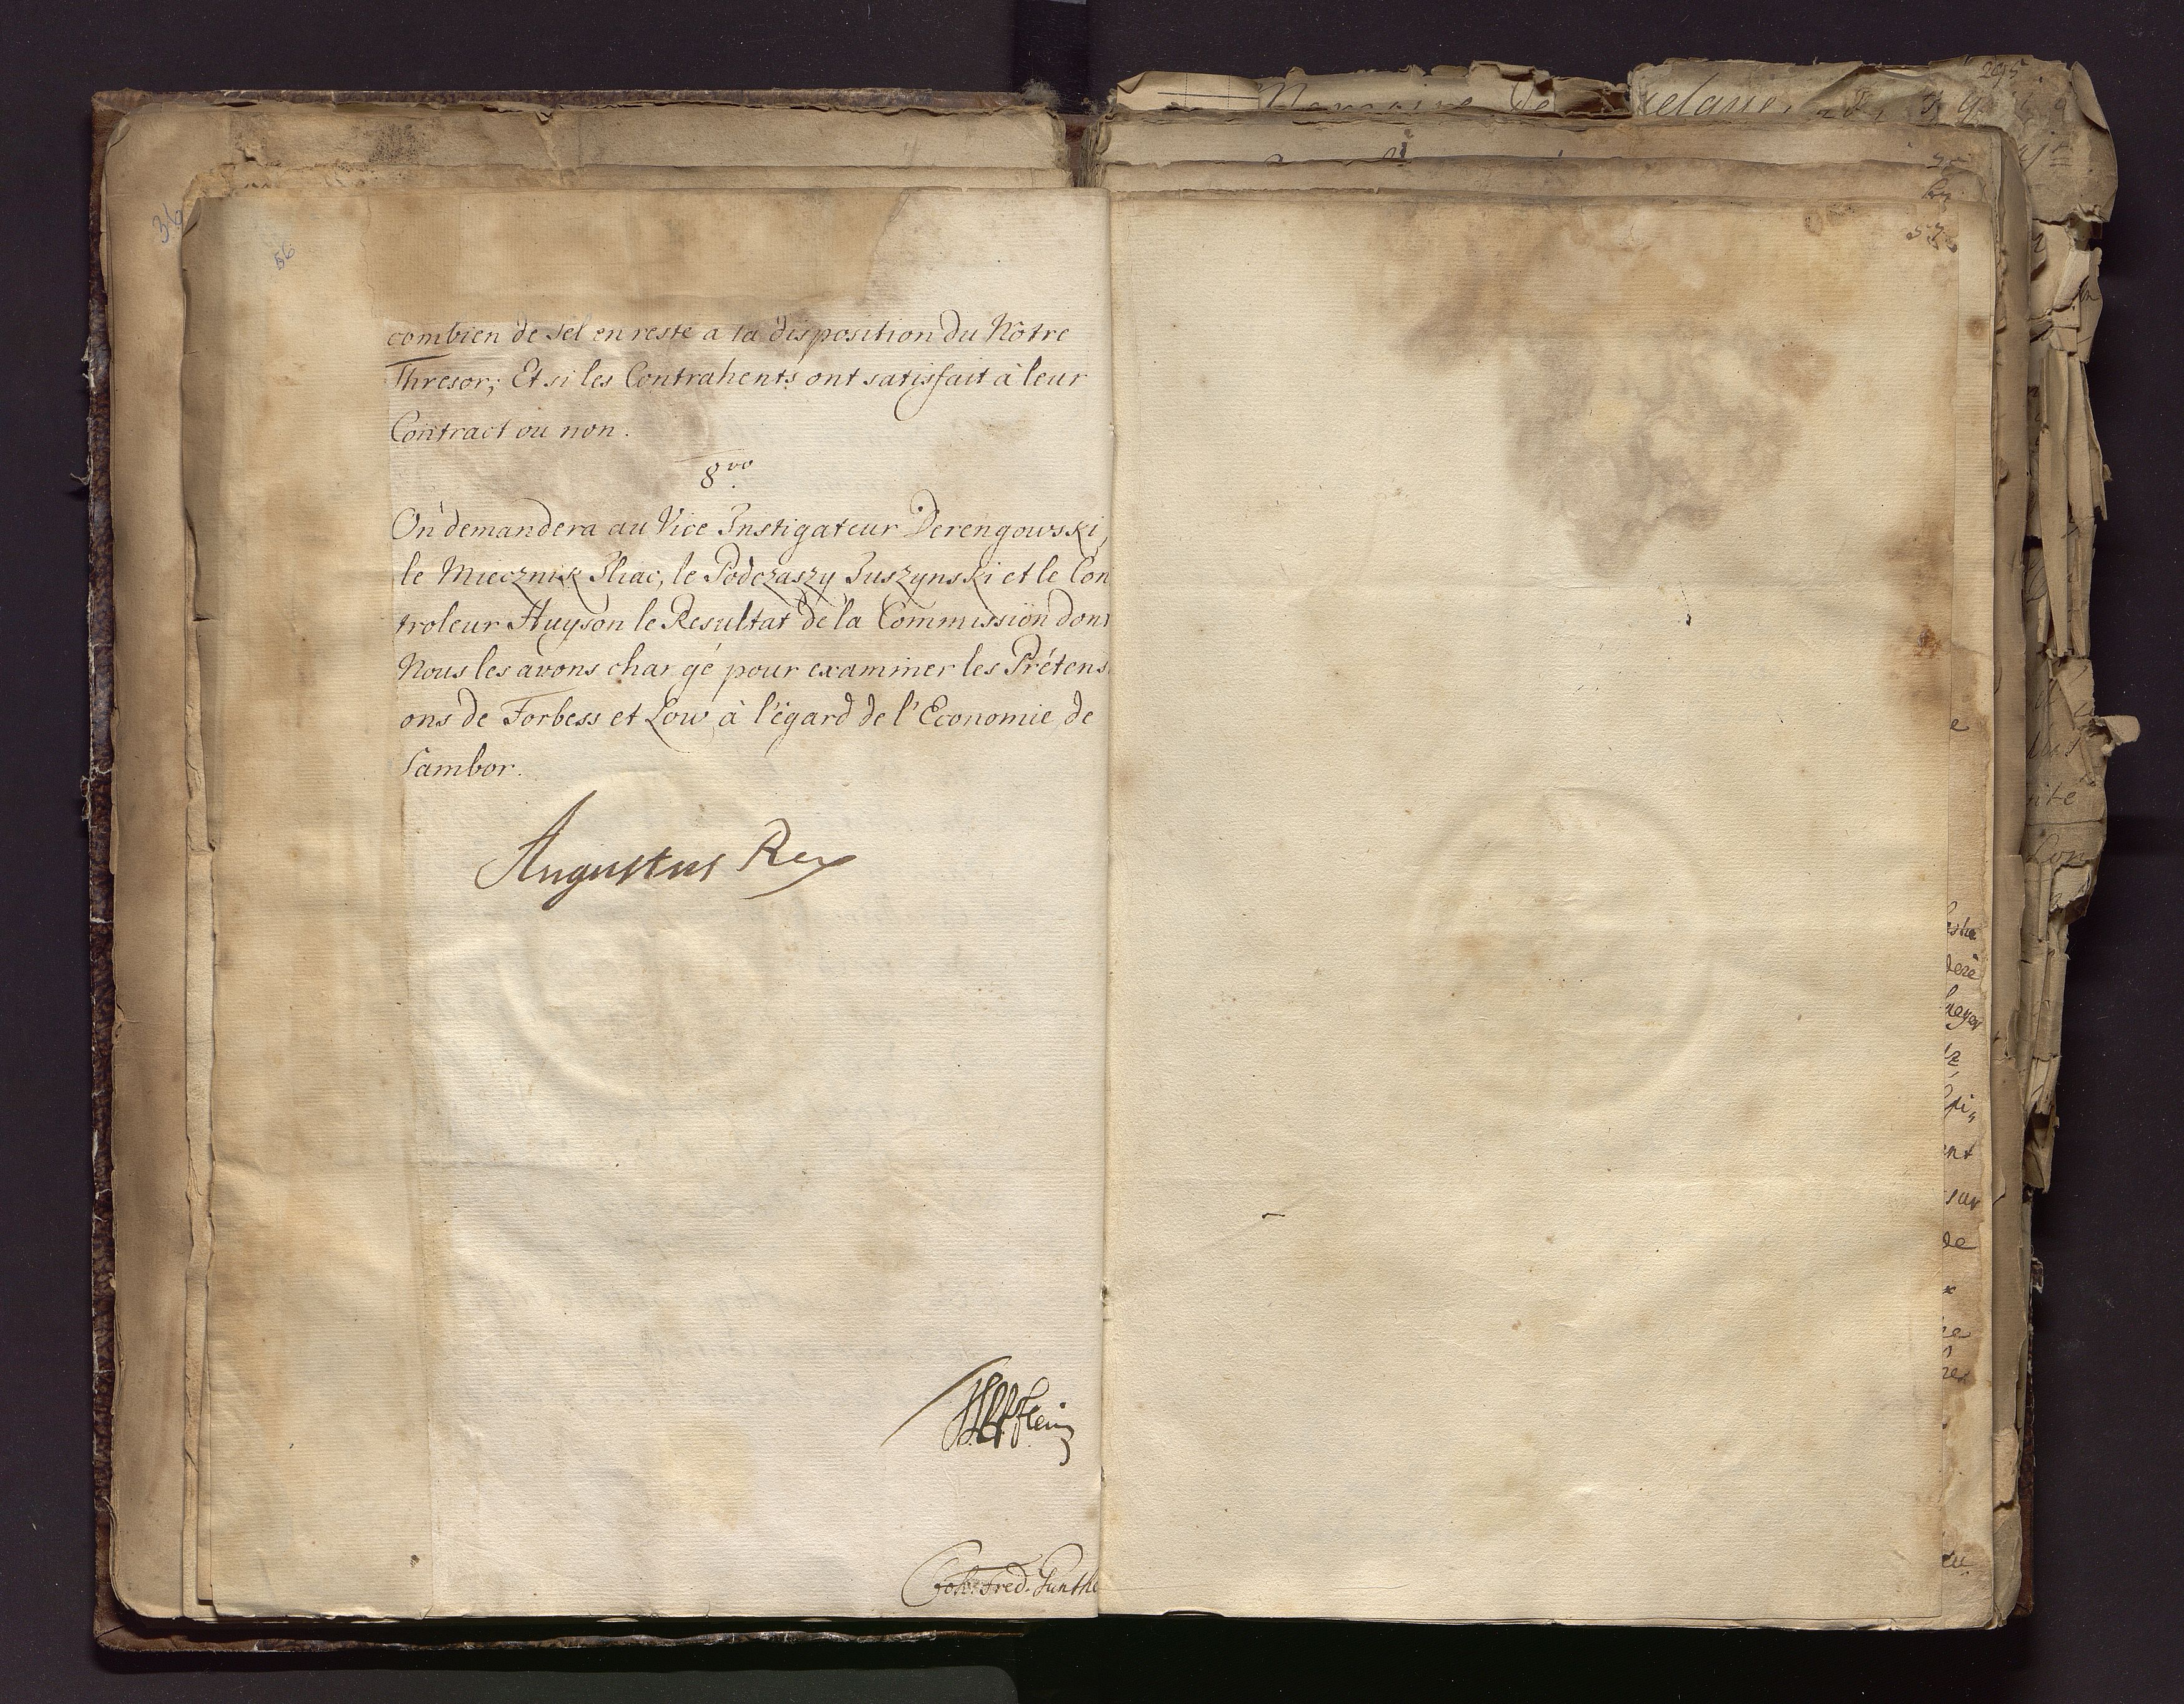 56
combien de sel en reste a la disposition du Nôtre
Thresor; Et si les Contrahents ont satisfait à leur
Contract ou non.
8vo.
On demandera au Vice Instigateur Derengowski,
le Miecznik Iliac, le Podczaszy Puszynski et le Con
troleur Huyson le Resultat de la Commission dont
Nous les avons chargé pour examiner les Prétensi
ons de Forbess et Low à l'égard de l'Economie de
Sambor.
Augustus Rex
Joh. Fred. Gunthe
57